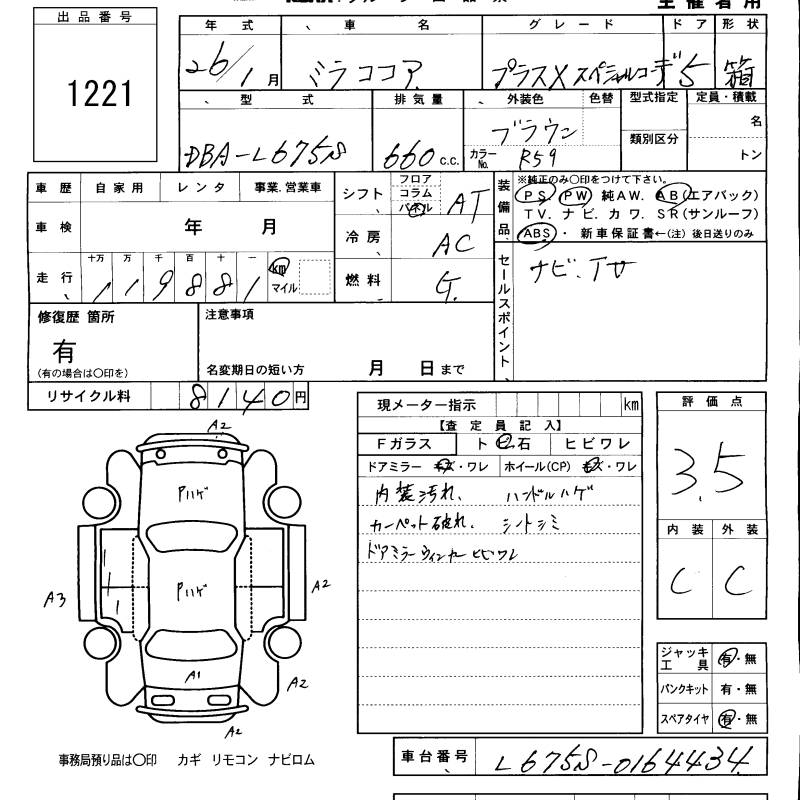 出品番号
1221
年式 車名 グレード ドア 形状
26/1月 ミラココア プラスX スペシャルコーデ 5 箱
型式 排気量 外装色 色替 型式指定 定員・積載
DBA-L675S 660c.c. ブラウン 名
カラーNo. R59 類別区分 トン
車歴 自家用 レンタ 事業.営業車
車検 年 月
十万 万 千 百 十 一
走行 119881 km マイル
シフト フロア コラム パネル AT
冷房 AC
燃料 G.
装備品
※純正のみ〇印をつけて下さい。
PS. PW 純AW. AB(エアバック)
TV. ナビ. カワ. SR(サンルーフ)
ABS・ 新車保証書←(注) 後日送りのみ
セールスポイント
ナビ.TV
修復歴 箇所
有
(有の場合は〇印を)
注意事項
名変期日の短い方 月 日まで
リサイクル料 8140円
現メーター指示 km
【査定員記入】
Fガラス ト ビ 石 ヒビワレ
ドアミラー キズ・ワレ ホイール(CP) キズ・ワレ
内装汚れ、 ハンドルハゲ
カーペット破れ、 シートシミ
ドアミラーウィンカーヒビワレ
評価点
3.5
内装 外装
C C
A2
Pハゲ
Pハゲ
A3
A2
A1
A2
A2
ジャッキ工具 有・無
パンクキット 有・無
スペアタイヤ 有・無
事務局預り品は〇印 カギ リモコン ナビロム
車台番号 L675S-0164434